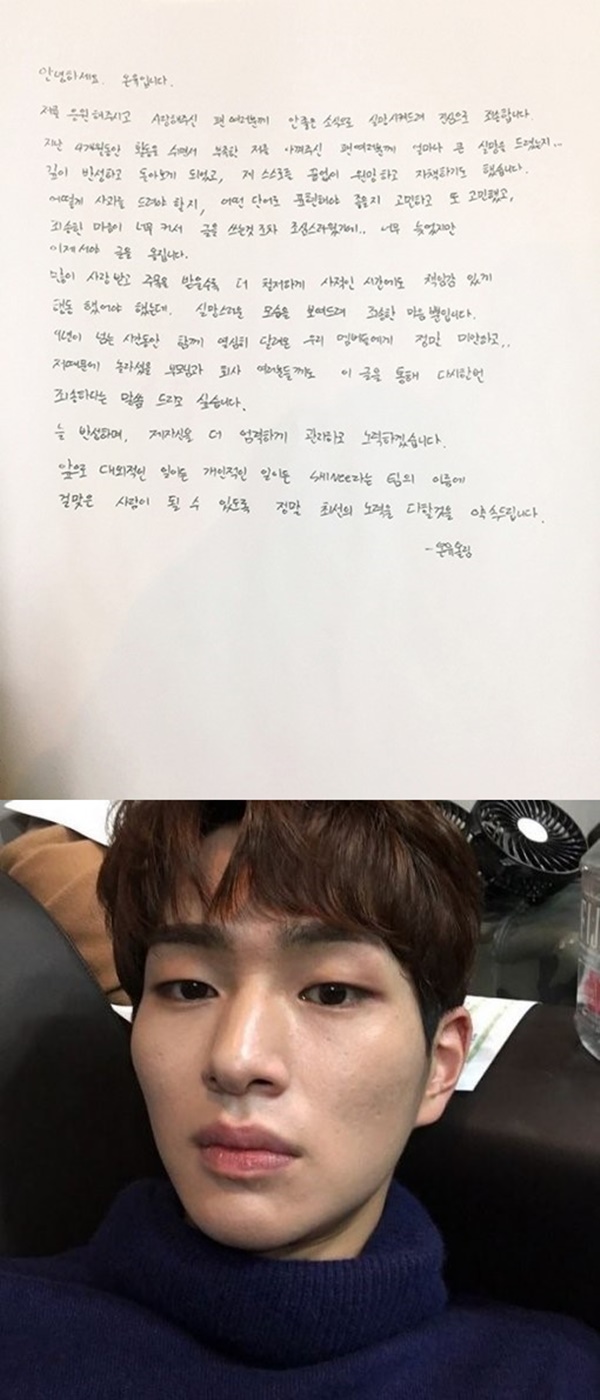 안녕하세요. 온유입니다.
저를 응원해주시고 사랑해주신 팬 여러분께 안좋은 소식으로 실망시켜드려 진심으로 죄송합니다.
지난 4개월동안 활동을 쉬면서 부족한 저를 아껴주신 팬 여러분께 얼마나 큰 실망을 드렸는지..
깊이 반성하고 돌아보게 되었고, 제 스스로를 끊임없이 원망하고 자책하기도 했습니다.
어떻게 사과를 드려야 할지, 어떤 단어로 표현해야 좋을지 고민하고 또 고민했고,
죄송한 마음이 너무 커서 글을 쓰는것 조차 조심스러웠기에.. 너무 늦었지만
이제서야 글을 옮깁니다.
많이 사랑 받고 주목을 받을수록 더 철저하게 사적인 시간에도 책임감 있게
행동 했어야 했는데. 실망스러운 모습을 보여드려 죄송한 마음 뿐입니다.
9년이 넘는 시간동안 함께 열심히 달려온 우리 멤버들에게 정말 미안하고..
저때문에 놀라셨을 부모님과 회사 여러분들께도 이 글을 통해 다시한번
죄송하다는 말씀 드리고 싶습니다.
늘 반성하며, 제자신을 더 엄격하게 관리하고 노력하겠습니다.
앞으로 대외적인 일이든 개인적인 일이든 SHINee라는 팀의 이름에
걸맞은 사람이 될 수 있도록 정말 최선의 노력을 다할것을 약속드립니다.
-온유올림